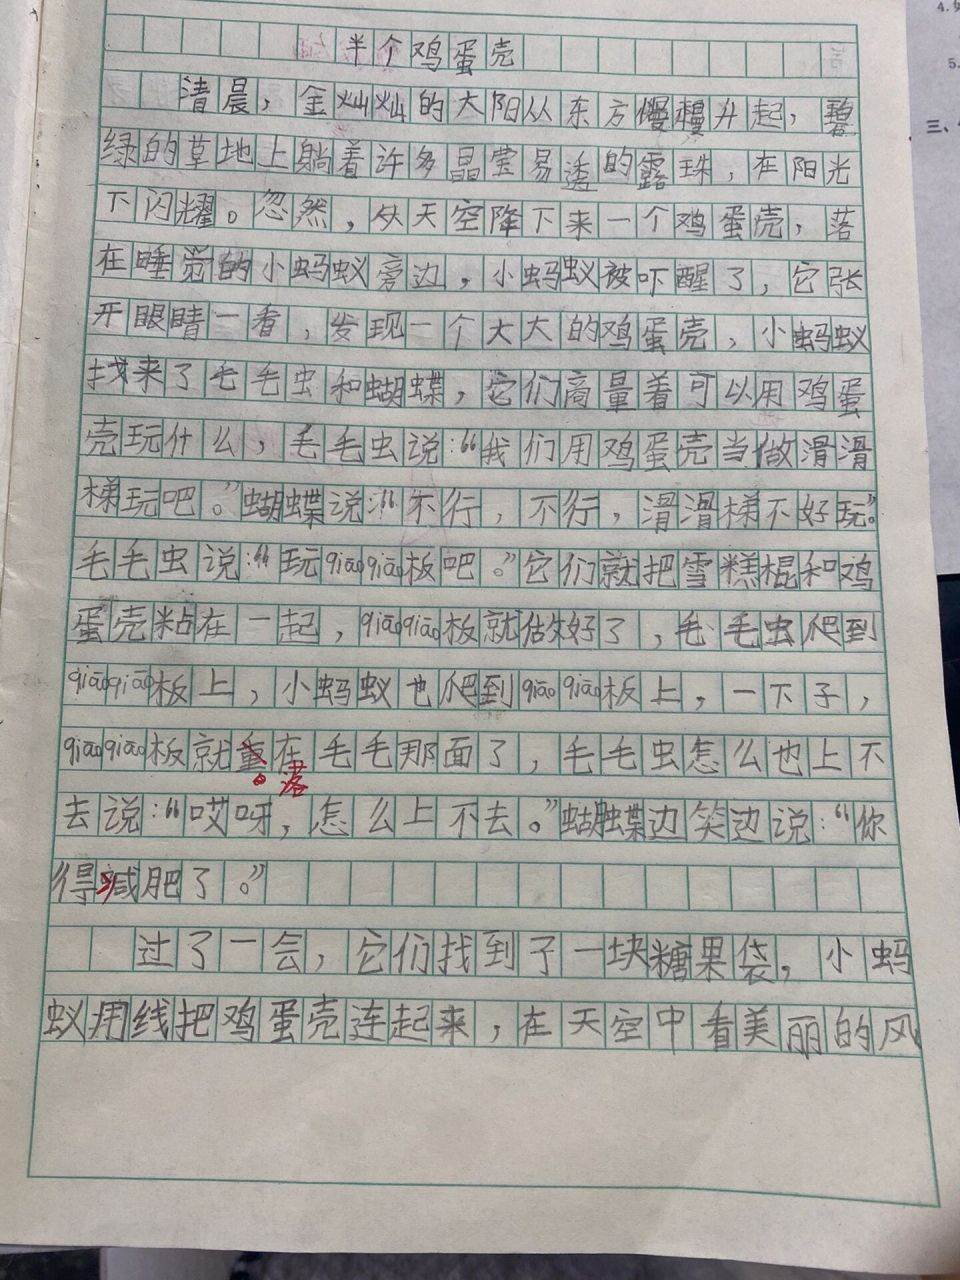 半个鸡蛋壳
清晨，金灿灿的太阳从东方慢慢升起，碧
绿的草地上躺着许多晶莹易透的露珠，在阳光
下闪耀。忽然，从天空降下来一个鸡蛋壳，落
在睡觉的小蚂蚁旁边，小蚂蚁被吓醒了，它张
开眼睛一看，发现一个大大的鸡蛋壳，小蚂蚁
找来了毛毛虫和蝴蝶，它们商量着可以用鸡蛋
壳玩什么，毛毛虫说：“我们用鸡蛋壳当做滑滑
梯玩吧。”蝴蝶说：“不行，不行，滑滑梯不好玩”。
毛毛虫说：“玩qiāoqiāo板吧。”它们就把雪糕棍和鸡
蛋壳粘在一起，qiāoqiāo板就做好了，毛毛虫爬到
qiāoqiāo板上，小蚂蚁也爬到qiāoqiāo板上，一下子，
qiāoqiāo板就重在毛毛那面了，毛毛虫怎么也上不
落
去说：“哎呀，怎么上不去。”蝴蝶边笑边说：“你
得减肥了。”
过了一会，它们找到了一块糖果袋，小蚂
蚁用线把鸡蛋壳连起来，在天空中看美丽的风
三、
5.
4.